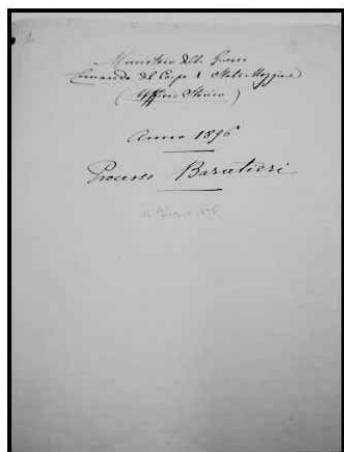 Ministero della Guerra
Comando del Corpo di Stato Maggiore
(Ufficio Storico)
Anno 1896
Processo Baratieri
Giugno 1896